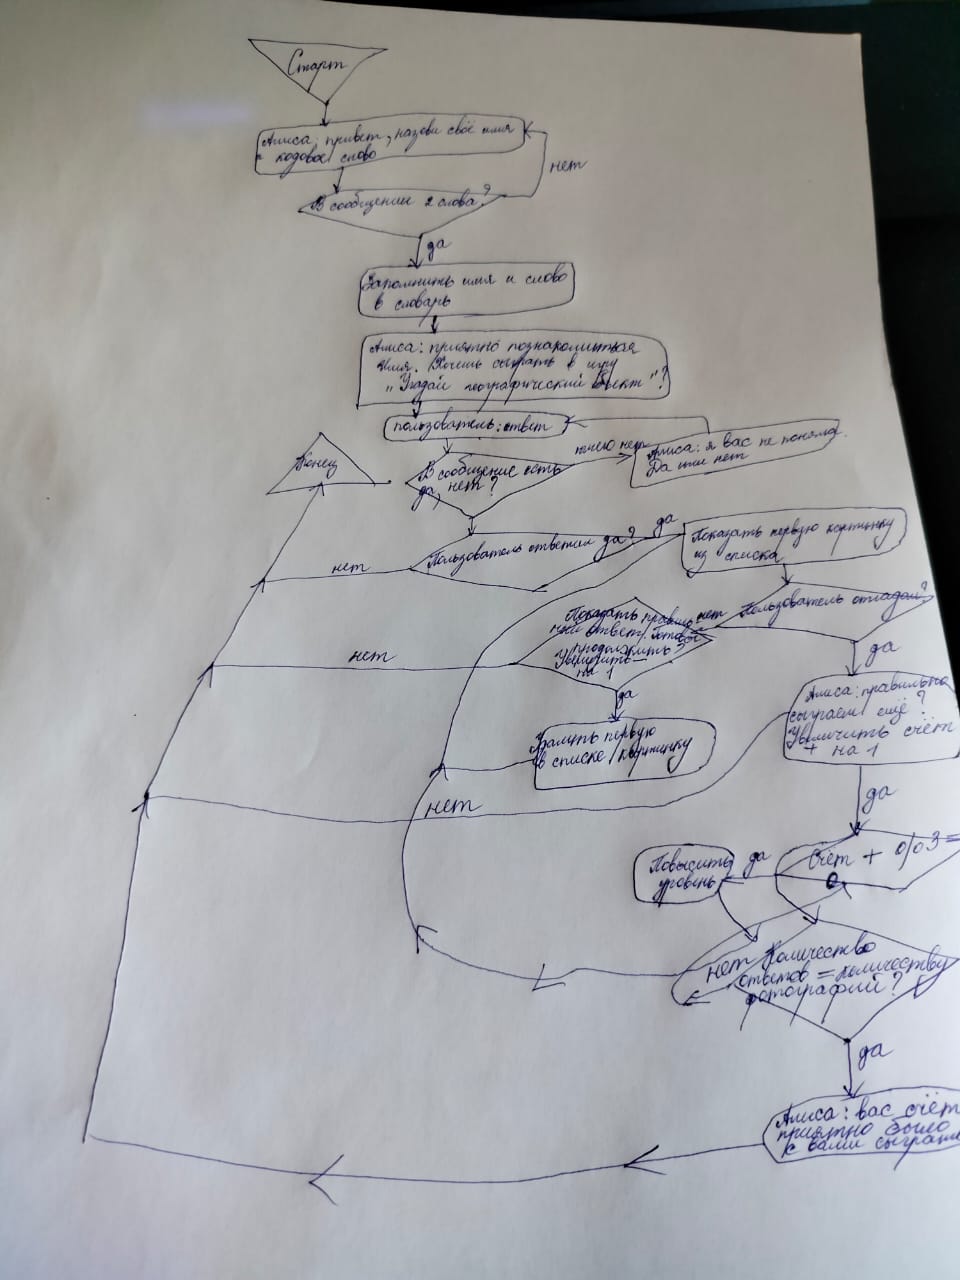 Старт
Алиса: привет, назови своё имя
и кодовое слово
нет
В сообщении 2 слова?
да
Запомнить имя и слово
в словарь
Алиса: приятно познакомиться
Имя. Хочешь сыграть в игру
"Угадай географический объект"?
пользователь: ответ
Конец
В сообщение есть
да, нет?
нет
Алиса: я вас не поняла.
Да или нет
Пользователь ответил да?
да
нет
Показать первую картинку
из списка
Пользователь отгадал?
нет
да
Показать правиль
ный ответ. Готов
продолжить?
Увеличить —
на 1
нет
да
Удалить первую
в списке картинку
Алиса: правильно
сыграем ещё?
Увеличить счёт
+ на 1
нет
да
Счёт + % 3 =
0
да
Повысить
уровень
нет
Количество
ответов = количеству
фотографий?
да
Алиса: вас счёт
приятно было
с вами сыграть